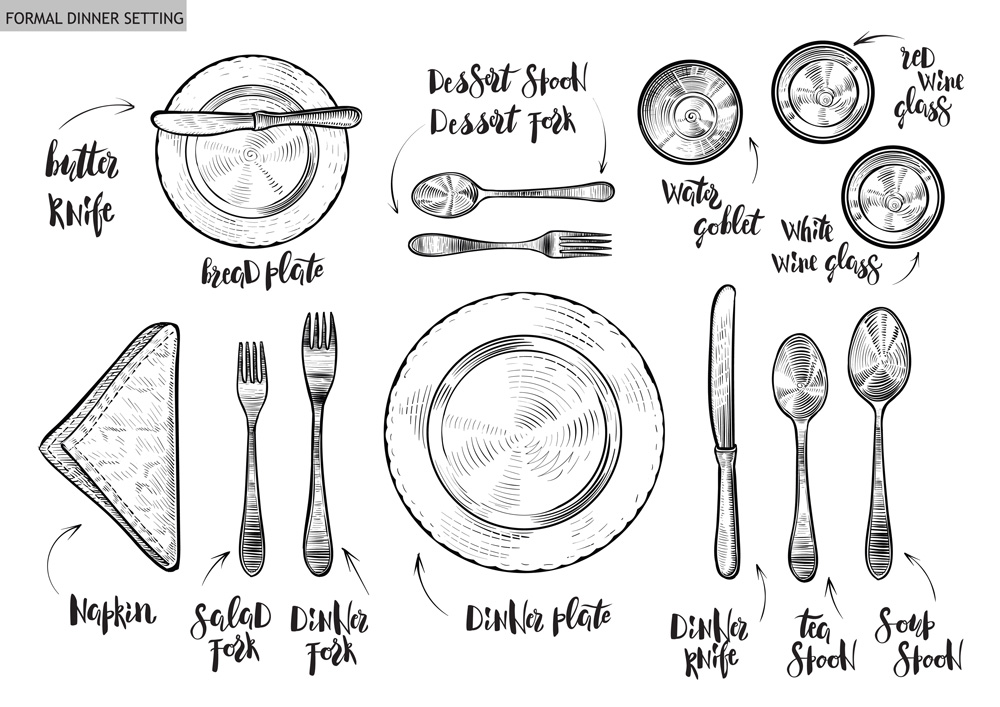 FORMAL DINNER SETTING
butter
knife
bread plate
Dessert Spoon
Dessert Fork
water
goblet
red
wine
glass
white
wine glass
Napkin
Salad
Fork
Dinner
Fork
Dinner plate
Dinner
knife
tea
Spoon
Soup
Spoon